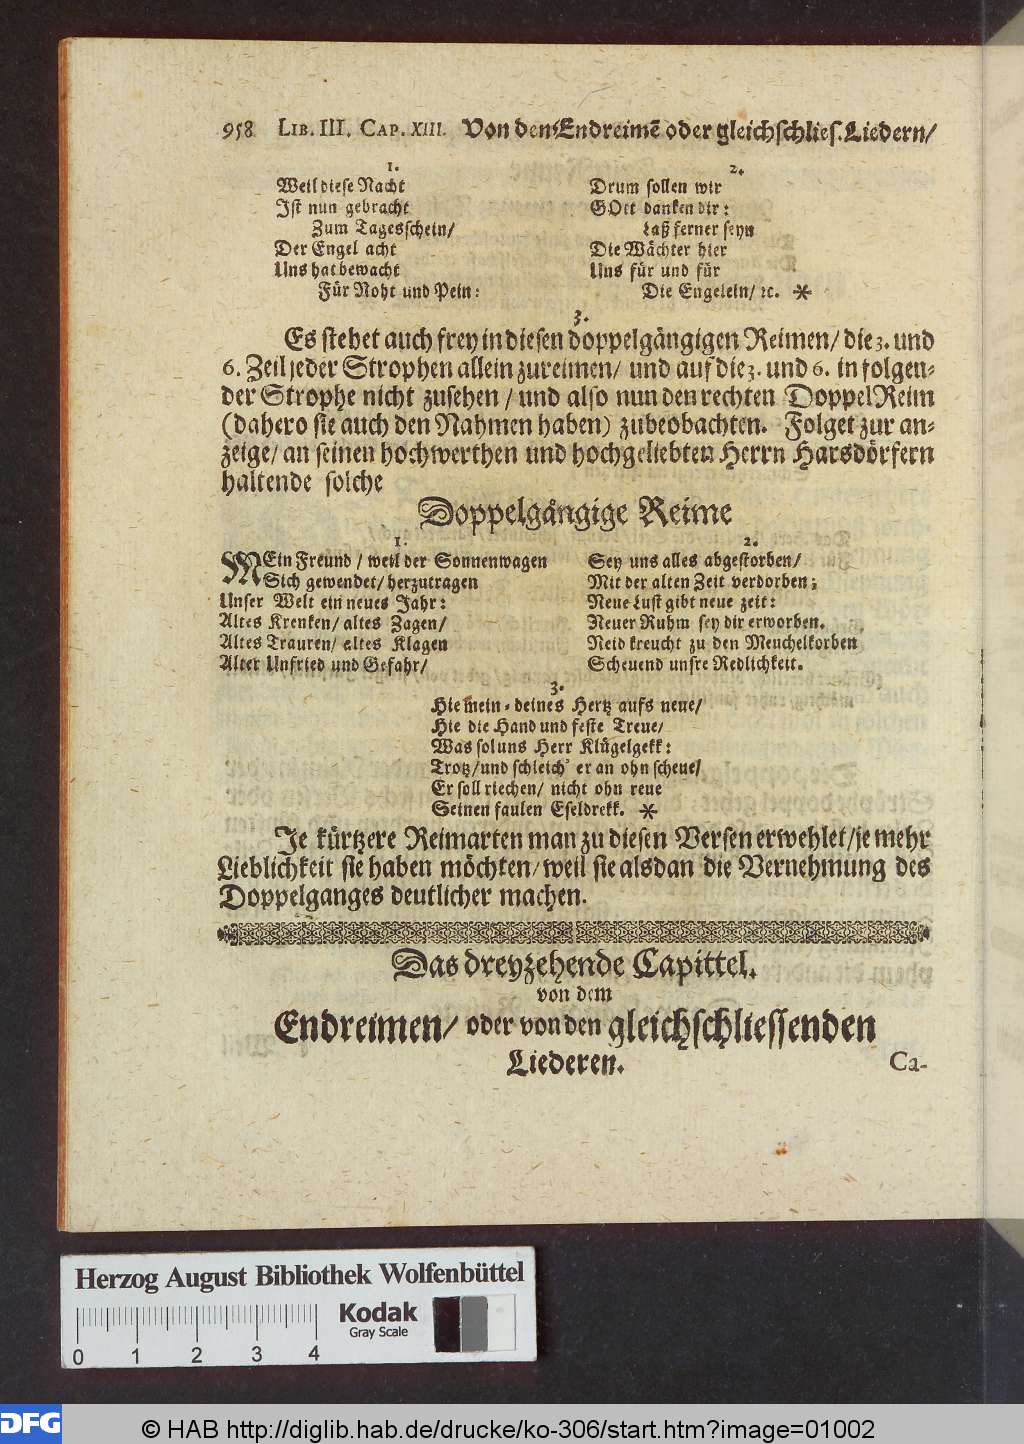 958 LIB. III. CAP. XIII. Von den Endreimē oder gleichschlies. Liedern/
1.
Weil diese Nacht
Ist nun gebracht
Zum Tagesschein/
Der Engel acht
Uns hat bewacht
Für Noht und Pein:
2.
Drum sollen wir
GOtt danken dir:
Laß ferner seyn
Die Wächter hier
Uns für und für
Die Engelein/ ꝛc. *
3.
Es stehet auch frey in diesen doppelgängigen Reimen/ die 3. und
6. Zeil jeder Strophen allein zureimen/ und auf die 3. und 6. in folgen-
der Strophe nicht zusehen / und also nun den rechten DoppelReim
(dahero sie auch den Nahmen haben) zubeobachten. Folget zur an-
zeige/ an seinen hochwerthen und hochgeliebten Herrn Harsdörfern
haltende solche
Doppelgängige Reime
1.
MEin Freund / weil der Sonnenwagen
Sich gewendet/ herzutragen
Unser Welt ein neues Jahr:
Altes Krenken/ altes Zagen/
Altes Trauren/ altes Klagen
Alter Unfried und Gefahr/
2.
Sey uns alles abgestorben/
Mit der alten Zeit verdorben;
Neue Lust gibt neue zeit:
Neuer Ruhm sey dir erworben.
Neid kreucht zu den Meuchelkorben
Scheuend unsre Redlichkeit.
3.
Hie mein-deines Hertz aufs neue/
Hie die Hand und feste Treue/
Was sol uns Herr Klügelgekk:
Trotz/ und schleich' er an ohn scheue/
Er soll riechen/ nicht ohn reue
Seinen faulen Eseldrekk. *
Je kürtzere Reimarten man zu diesen Versen erwehlet/ je mehr
Lieblichkeit sie haben möchten/ weil sie alsdan die Vernehmung des
Doppelganges deutlicher machen.
Das dreyzehende Capittel.
von dem
Endreimen/ oder von den gleichschliessenden
Liederen.
Ca-
Herzog August Bibliothek Wolfenbüttel
Kodak
Gray Scale
0 1 2 3 4
DFG
© HAB http://diglib.hab.de/drucke/ko-306/start.htm?image=01002